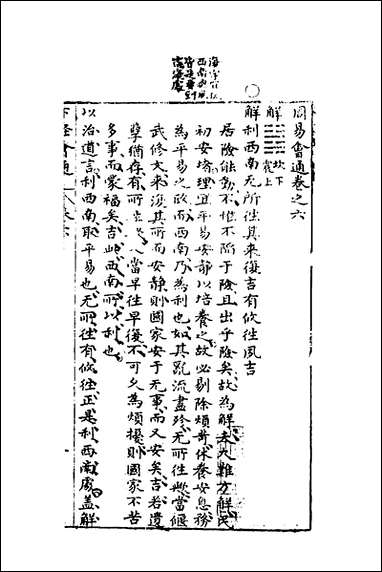 周易會通卷之六
解 坎下 震上
解利西南无所往其來復吉有攸往夙吉
居險能動不惟不陷于險且出乎險矣故為解夫大難方解民
初安堵理宜平易安静以培養之故必剔除煩苛休養安息務
為平易之政而西南乃為利也如其亂流盡殄无所往歟當偃
武修文來復其所而安靜則國家安于无事而又安矣吉若遺
孽猶存有所往當早往早復不可久為煩擾則國家不苦
多事而蒙福矣吉此西南所以利也
以治道言利西南取平易也无所往有攸往正是利西南處蓋解